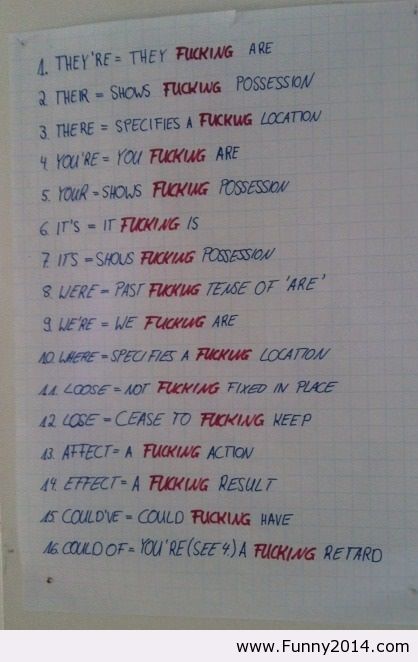 1. THEY'RE = THEY FUCKING ARE
2. THEIR = SHOWS FUCKING POSSESSION
3. THERE = SPECIFIES A FUCKING LOCATION
4. YOU'RE = YOU FUCKING ARE
5. YOUR = SHOWS FUCKING POSSESSION
6. IT'S = IT FUCKING IS
7. ITS = SHOWS FUCKING POSSESSION
8. WERE = PAST FUCKING TENSE OF 'ARE'
9. WE'RE = WE FUCKING ARE
10. WHERE = SPECIFIES A FUCKING LOCATION
11. LOOSE = NOT FUCKING FIXED IN PLACE
12. LOSE = CEASE TO FUCKING KEEP
13. AFFECT = A FUCKING ACTION
14. EFFECT = A FUCKING RESULT
15. COULD'VE = COULD FUCKING HAVE
16. COULD OF = YOU'RE (SEE 4.) A FUCKING RETARD
www.Funny2014.com